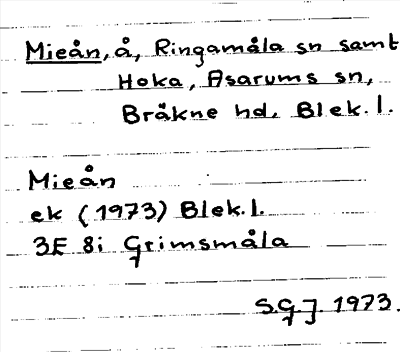 Mieån, å, Ringamåla sn samt
Hoka, Asarums sn,
Bräkne hd, Blek. l.
Mieån
ek (1973) Blek. l.
3E 8i Grimsmåla
S.G.J. 1973.